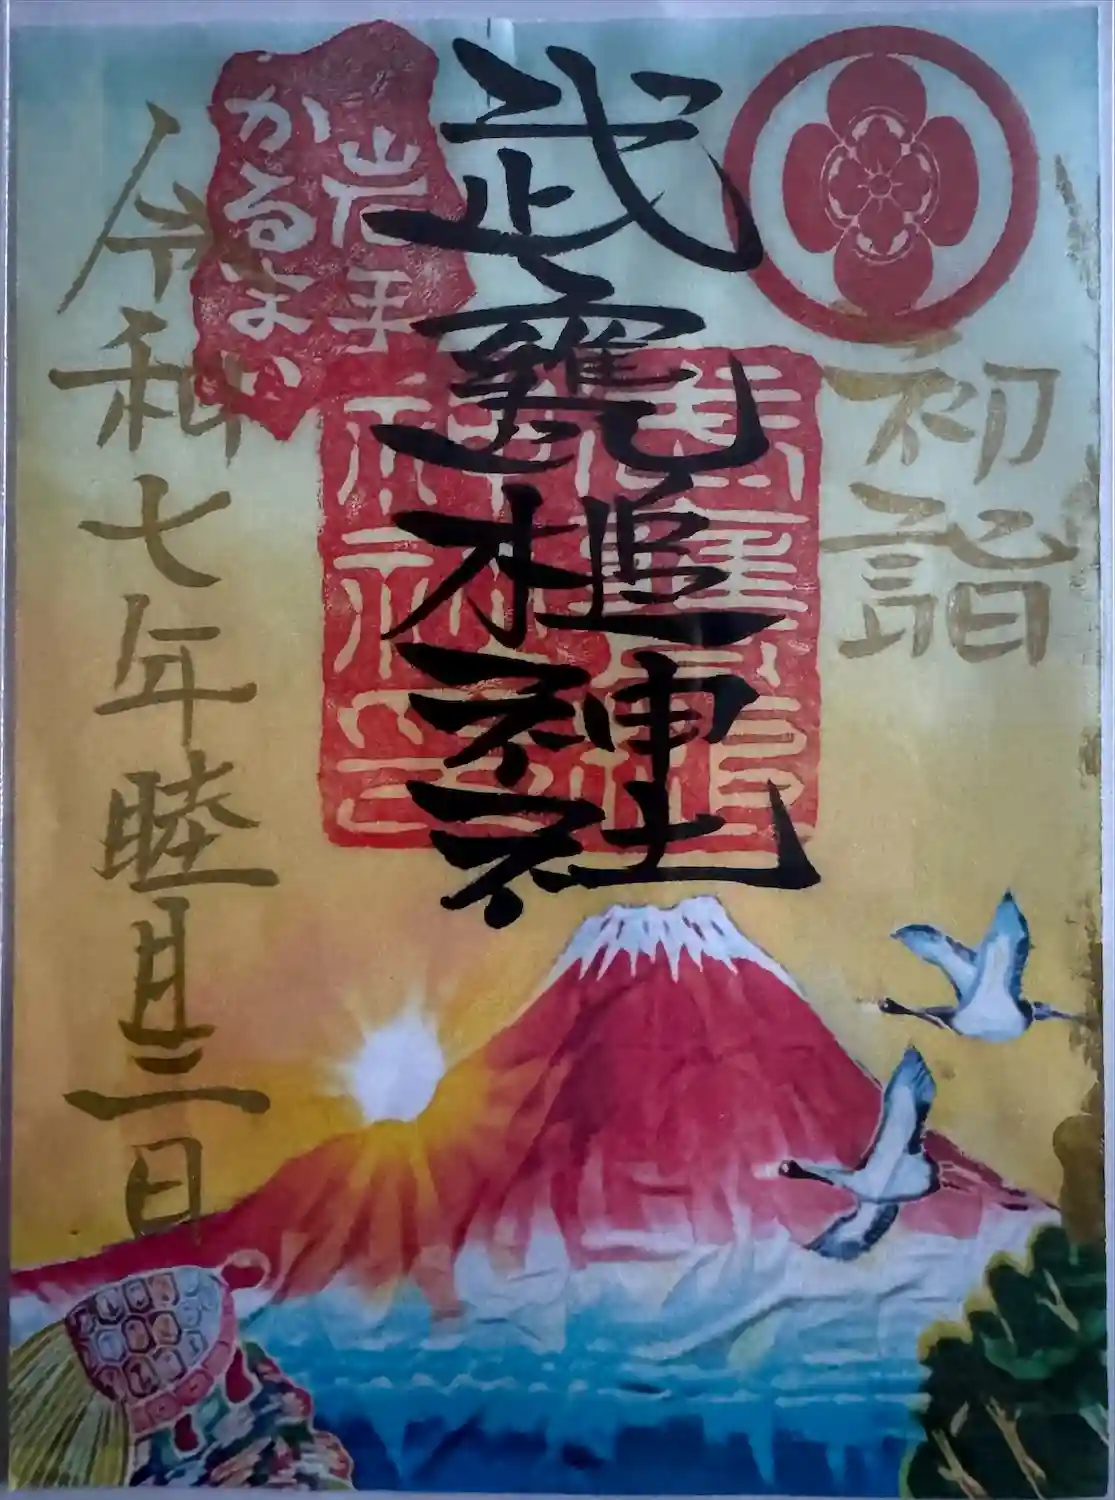 初詣
武甕槌神社
岩手
かるまい
令和七年睦月三日